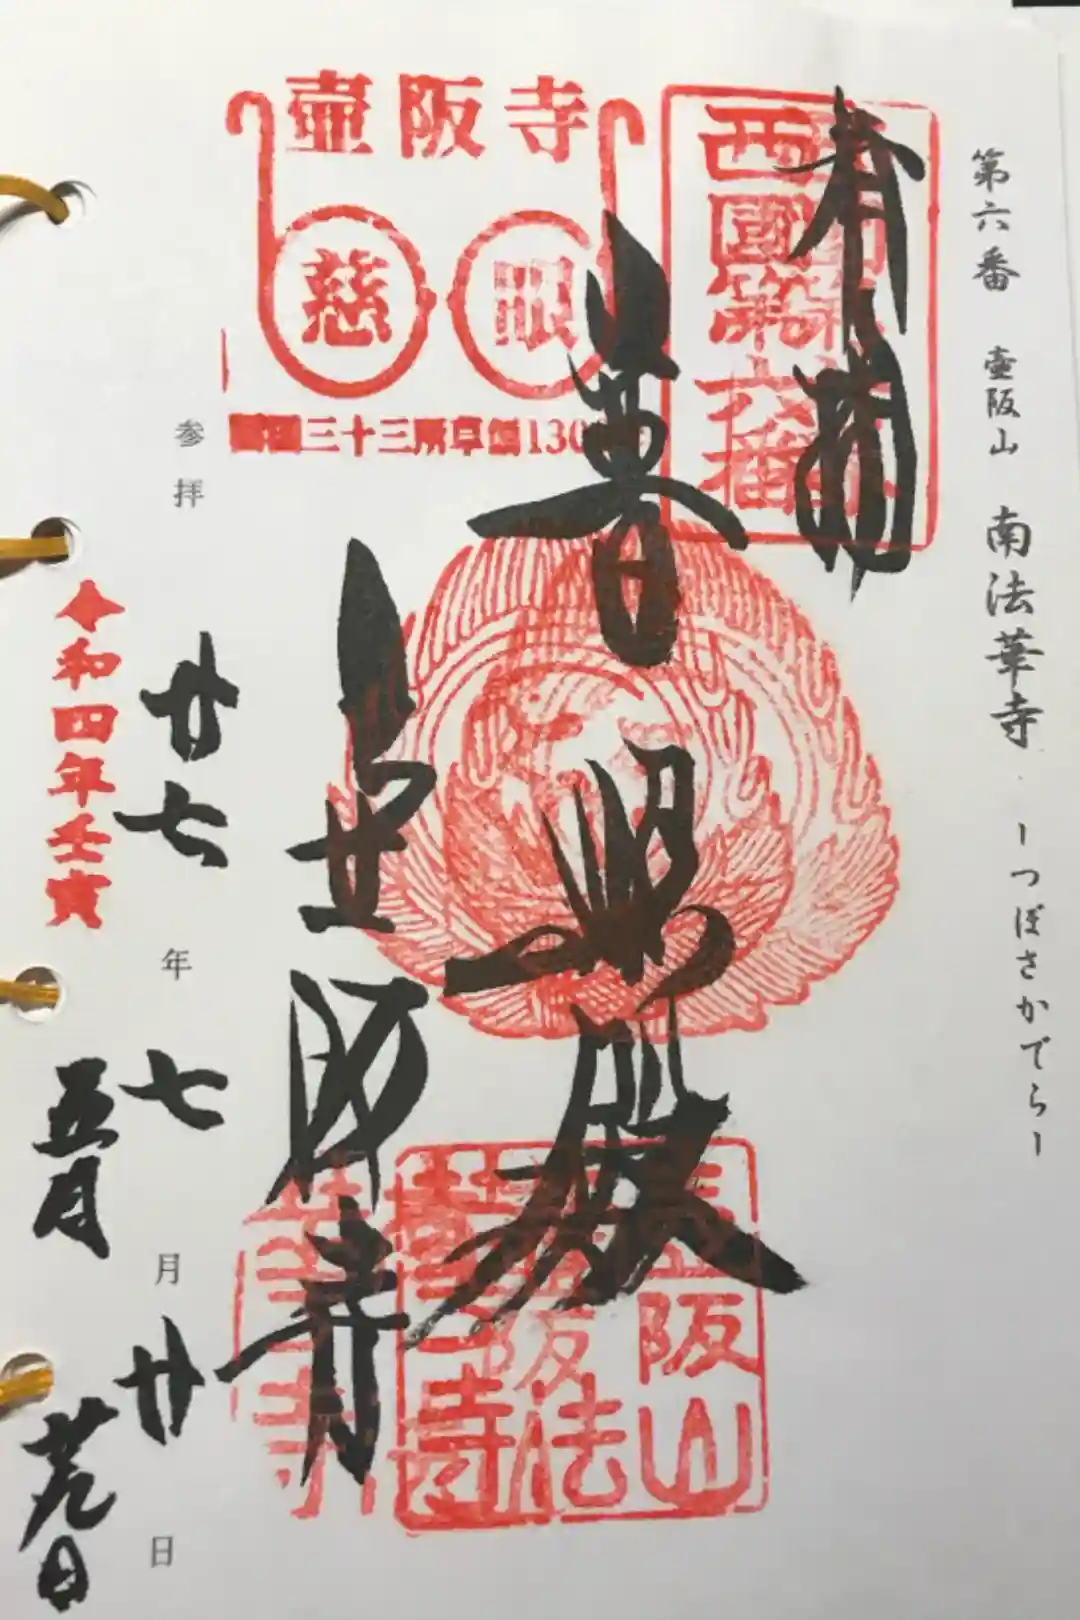 第六番 壺阪山 南法華寺 -つぼさかでら-
奉拝
西國第六番
普照殿
壺阪寺
壺阪寺
慈眼
三十三所草創130
壺阪山
法
寺
参拝 廿七年 七月 廿日
令和四年壬寅
五月
廿九日